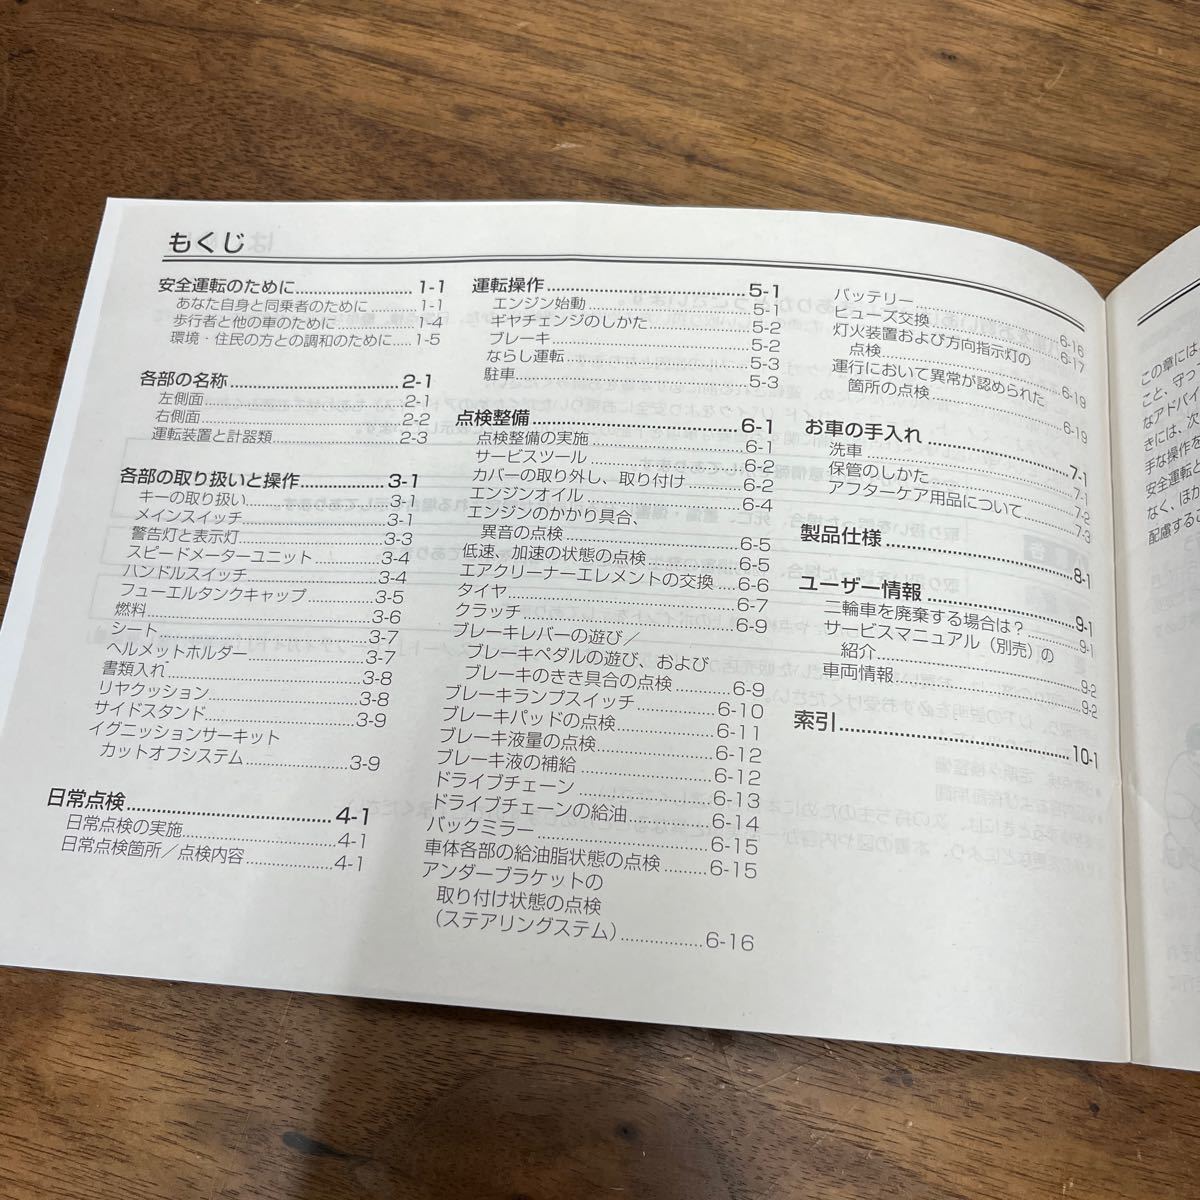 もくじ
安全運転のために..................1-1
あなた自身と同乗者のために..........1-1
歩行者と他の車のために..............1-4
環境・住民の方との調和のために.....1-5
各部の名称..........................2-1
左側面..............................2-1
右側面..............................2-2
運転装置と計器類....................2-3
各部の取り扱いと操作................3-1
キーの取り扱い......................3-1
メインスイッチ......................3-1
警告灯と表示灯......................3-3
スピードメーターユニット............3-4
ハンドルスイッチ....................3-4
フューエルタンクキャップ............3-5
燃料................................3-6
シート..............................3-7
ヘルメットホルダー..................3-7
書類入れ............................3-8
リヤクッション......................3-8
サイドスタンド......................3-9
イグニッションサーキット
カットオフシステム..................3-9
日常点検............................4-1
日常点検の実施......................4-1
日常点検箇所／点検内容..............4-1
運転操作............................5-1
エンジン始動........................5-1
ギヤチェンジのしかた................5-2
ブレーキ............................5-2
ならし運転..........................5-3
駐車................................5-3
点検整備............................6-1
点検整備の実施......................6-1
サービスツール......................6-2
カバーの取り外し、取り付け..........6-2
エンジンオイル......................6-4
エンジンのかかり具合、
異音の点検..........................6-5
低速、加速の状態の点検..............6-5
エアクリーナーエレメントの交換......6-6
タイヤ..............................6-7
クラッチ............................6-9
ブレーキレバーの遊び／
ブレーキペダルの遊び、および
ブレーキのきき具合の点検............6-9
ブレーキランプスイッチ..............6-10
ブレーキパッドの点検................6-11
ブレーキ液量の点検..................6-12
ブレーキ液の補給....................6-12
ドライブチェーン....................6-13
ドライブチェーンの給油..............6-14
バックミラー........................6-15
車体各部の給油脂状態の点検..........6-15
アンダーブラケットの
取り付け状態の点検
（ステアリングステム）..............6-16
バッテリー..........................6-16
ヒューズ交換........................6-17
灯火装置および方向指示灯の
点検................................6-19
運行において異常が認められた
箇所の点検..........................6-19
お車の手入れ........................7-1
洗車................................7-1
保管のしかた........................7-2
アフターケア用品について............7-3
製品仕様............................8-1
ユーザー情報........................9-1
二輪車を廃棄する場合は？............9-1
サービスマニュアル（別売）の
紹介................................9-2
車両情報............................9-2
索引................................10-1
この章には、
こと、守っ
なアドバイ
きには、次
手な操作を
安全運転と
なく、ほか
配慮する